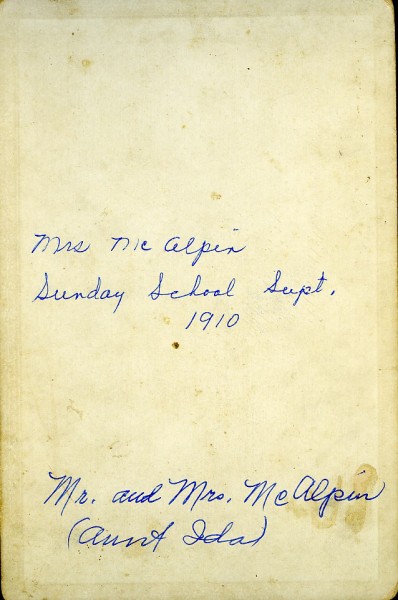 Mrs McAlpin
Sunday School Supt.
1910
Mr. and Mrs. McAlpin
(Aunt Ida)